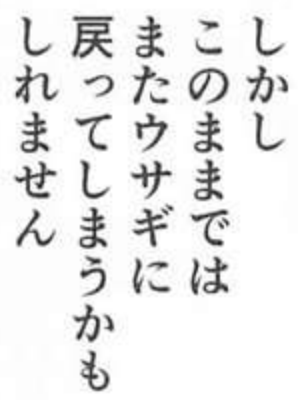 しかし
このままでは
またウサギに
戻ってしまうかも
しれません